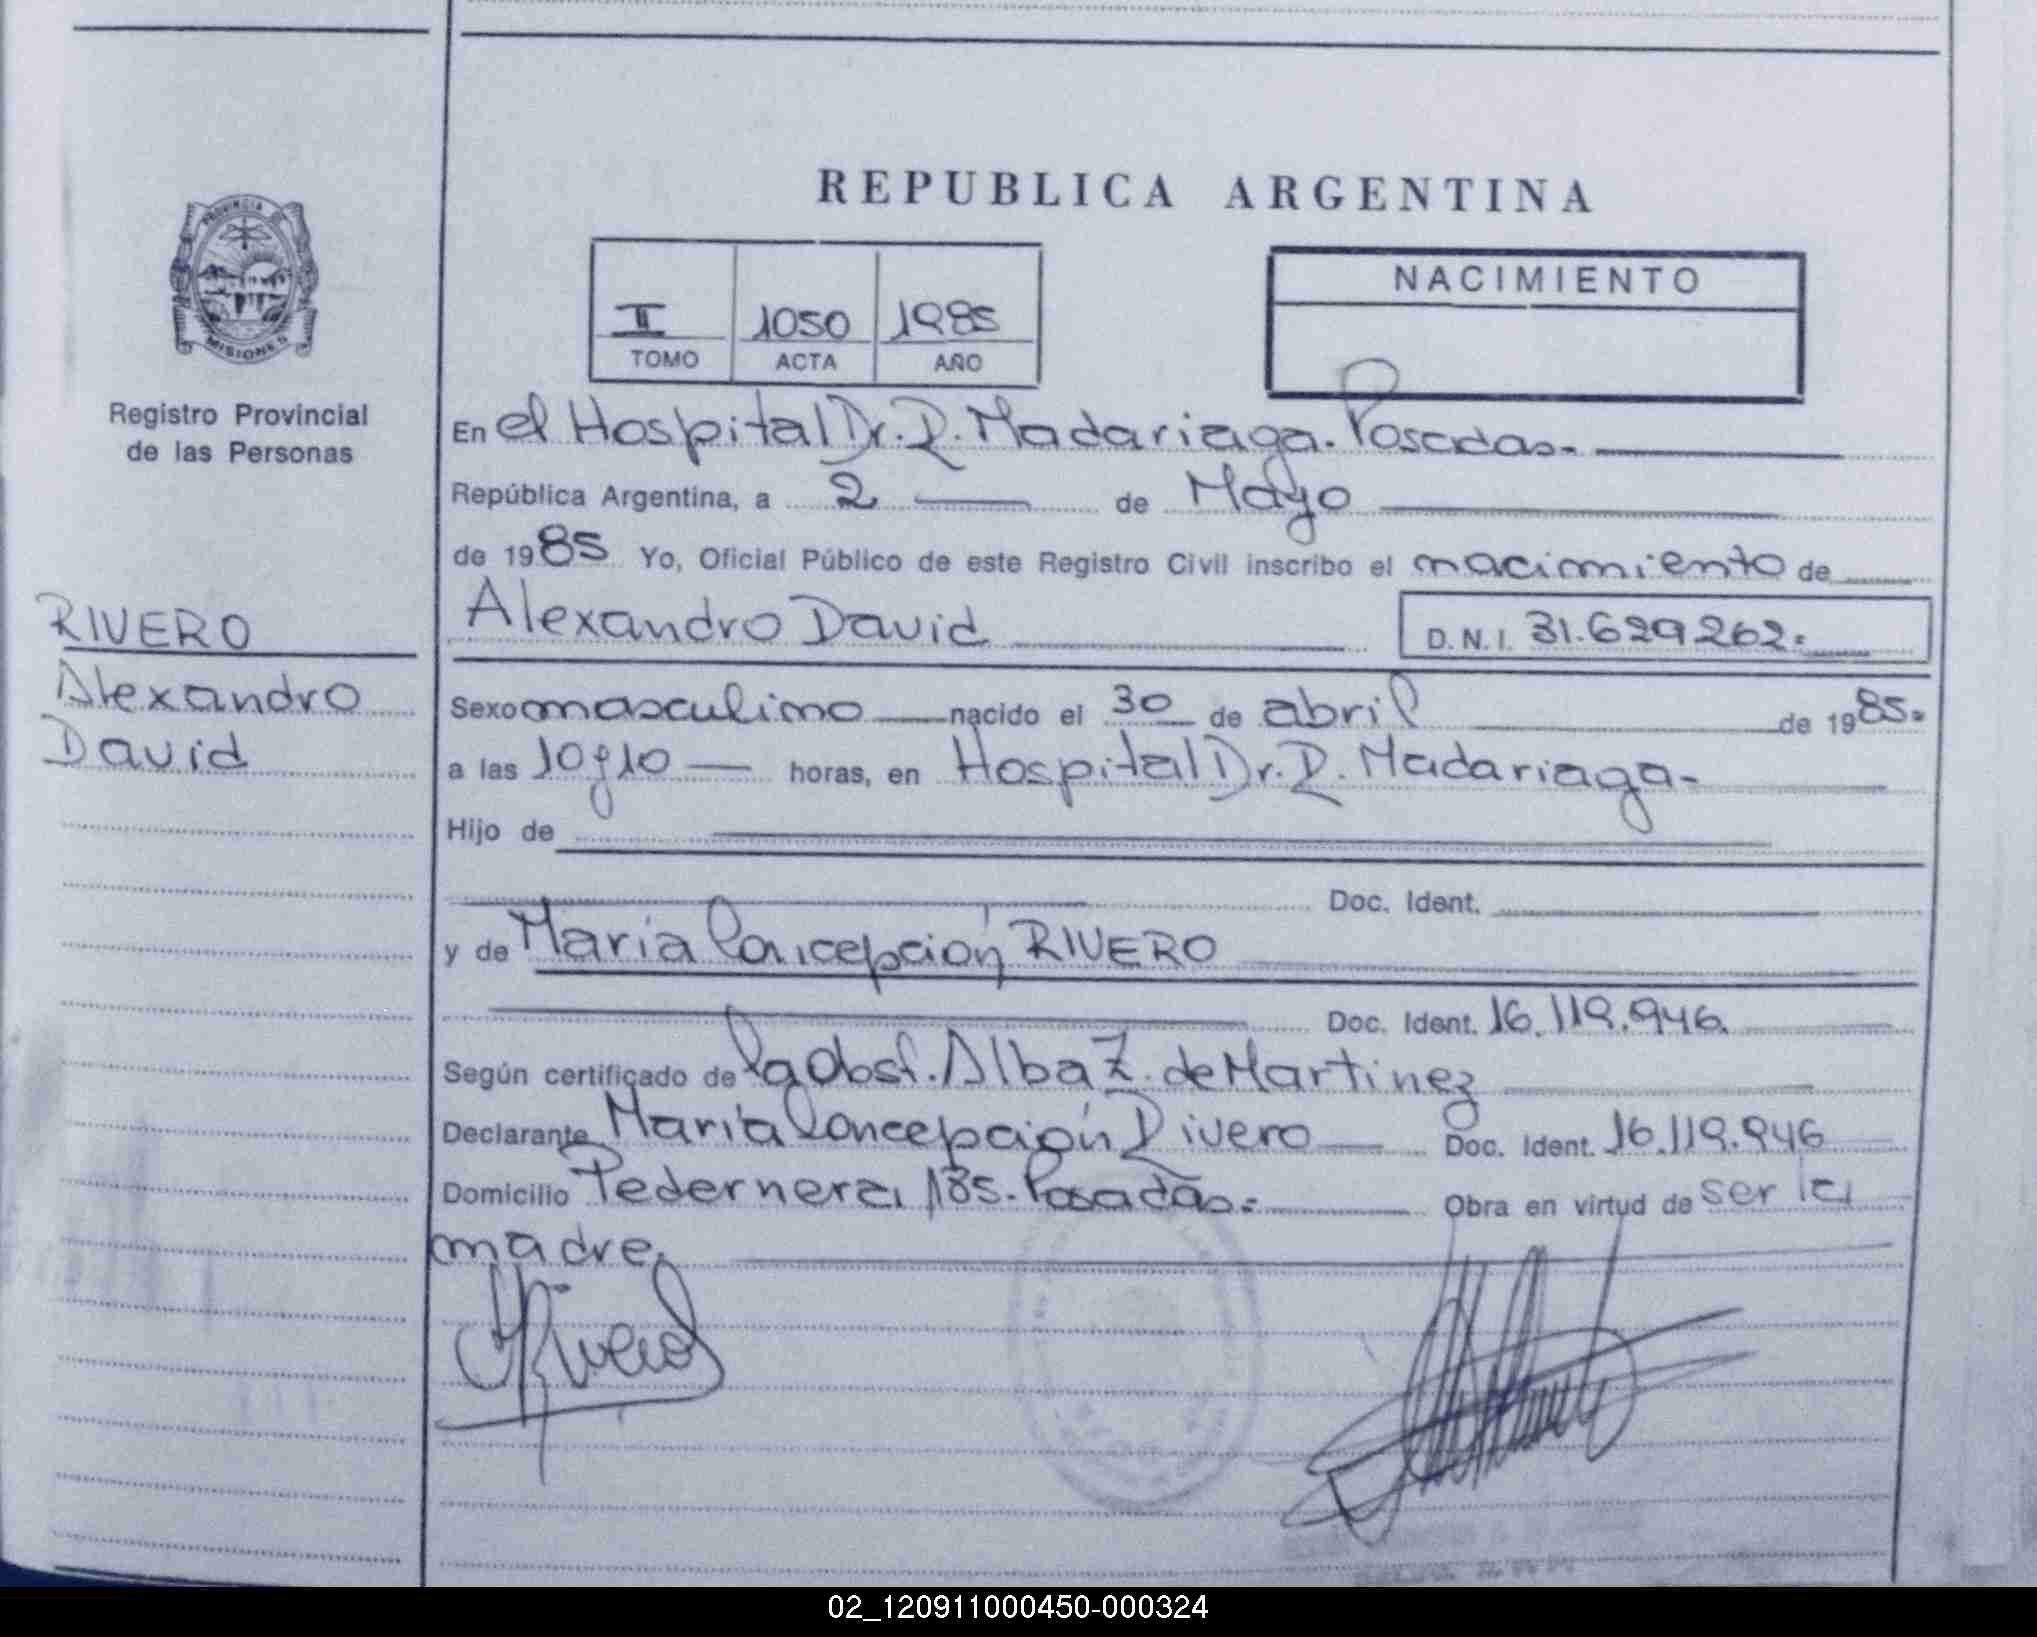 PROVINCIA DE
MISIONES
Registro Provincial
de las Personas
RIVERO
Alexandro
David
REPUBLICA ARGENTINA
II 1050 1985
TOMO ACTA AÑO
NACIMIENTO
En el Hospital Dr. R. Madariaga. Posadas.
República Argentina, a 2 de Mayo
de 1985 Yo, Oficial Público de este Registro Civil inscribo el nacimiento de
Alexandro David D.N.I. 31.629.262.
Sexo masculino nacido el 30 de abril de 1985.
a las 10 y 10 horas, en Hospital Dr. R. Madariaga
Hijo de
Doc. Ident.
y de María Concepción RIVERO
Doc. Ident. 16.119.946.
Según certificado de la Obst. Alba Z. de Martinez
Declarante María Concepción Rivero Doc. Ident. 16.119.946
Domicilio Pedernera 185. Posadas. Obra en virtud de ser la
madre.
02_120911000450-000324